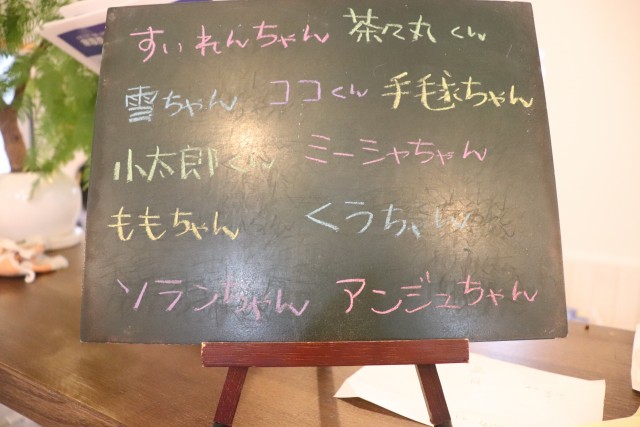 すいれんちゃん 茶々丸くん
雪ちゃん ココくん 手毬ちゃん
小太郎くん ミーシャちゃん
ももちゃん くうちゃん
ソランちゃん アンジュちゃん